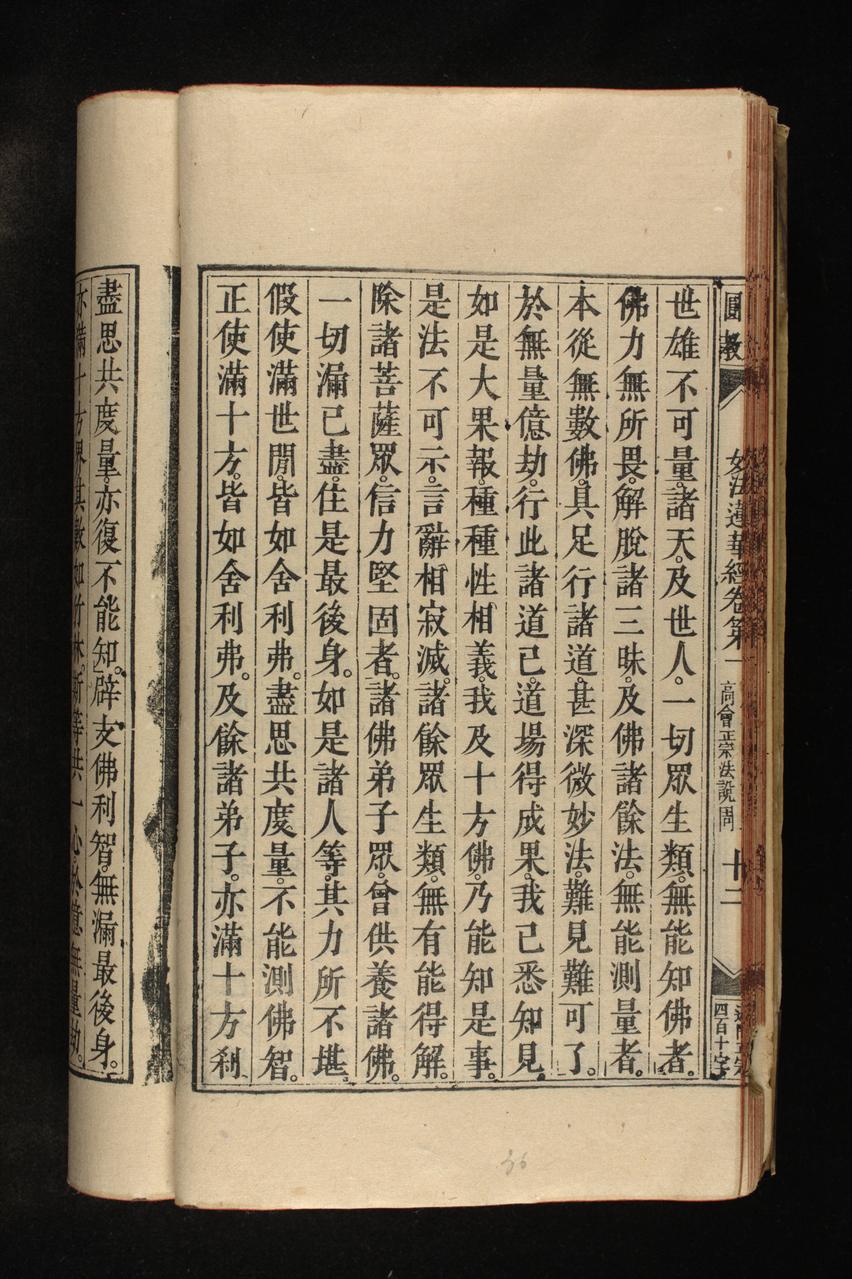 圓教
妙法蓮華經卷第一
高會正宗法說周
十二
四百十字
世雄不可量。諸天及世人。一切眾生類。無能知佛者。
佛力無所畏。解脫諸三昧。及佛諸餘法。無能測量者。
本從無數佛。具足行諸道。甚深微妙法。難見難可了。
於無量億劫。行此諸道已。道場得成果。我已悉知見。
如是大果報。種種性相義。我及十方佛。乃能知是事。
是法不可示。言辭相寂滅。諸餘眾生類。無有能得解。
除諸菩薩眾。信力堅固者。諸佛弟子眾。曾供養諸佛。
一切漏已盡。住是最後身。如是諸人等。其力所不堪。
假使滿世間。皆如舍利弗。盡思共度量。不能測佛智。
正使滿十方。皆如舍利弗。及餘諸弟子。亦滿十方剎
盡思共度量。亦復不能知。辟支佛利智。無漏最後身。
亦滿十方界。其數如竹林。斯等共一心。於億無量劫。
36